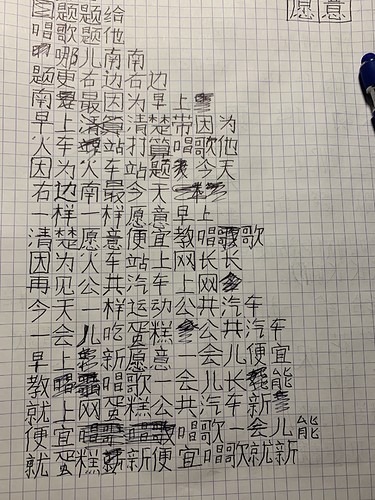 愿意
题题给
唱歌题他
哪儿南南
题更右边边
南最因为早上
早上清楚带因为
火算站清楚唱歌他
因车火打算今天
为站车题
右边南最今天
一样一样天
清楚愿愿意早上
因火意便宜教唱歌
为见车站上网长长
再公共汽网上
今天一样运动公共汽车
一会儿吃蛋糕公共汽车
早上新愿意一会儿便宜
教唱歌一会儿长能
就上网蛋糕公共汽车新
便宜唱歌一会儿能
就蛋糕新便宜唱歌就新